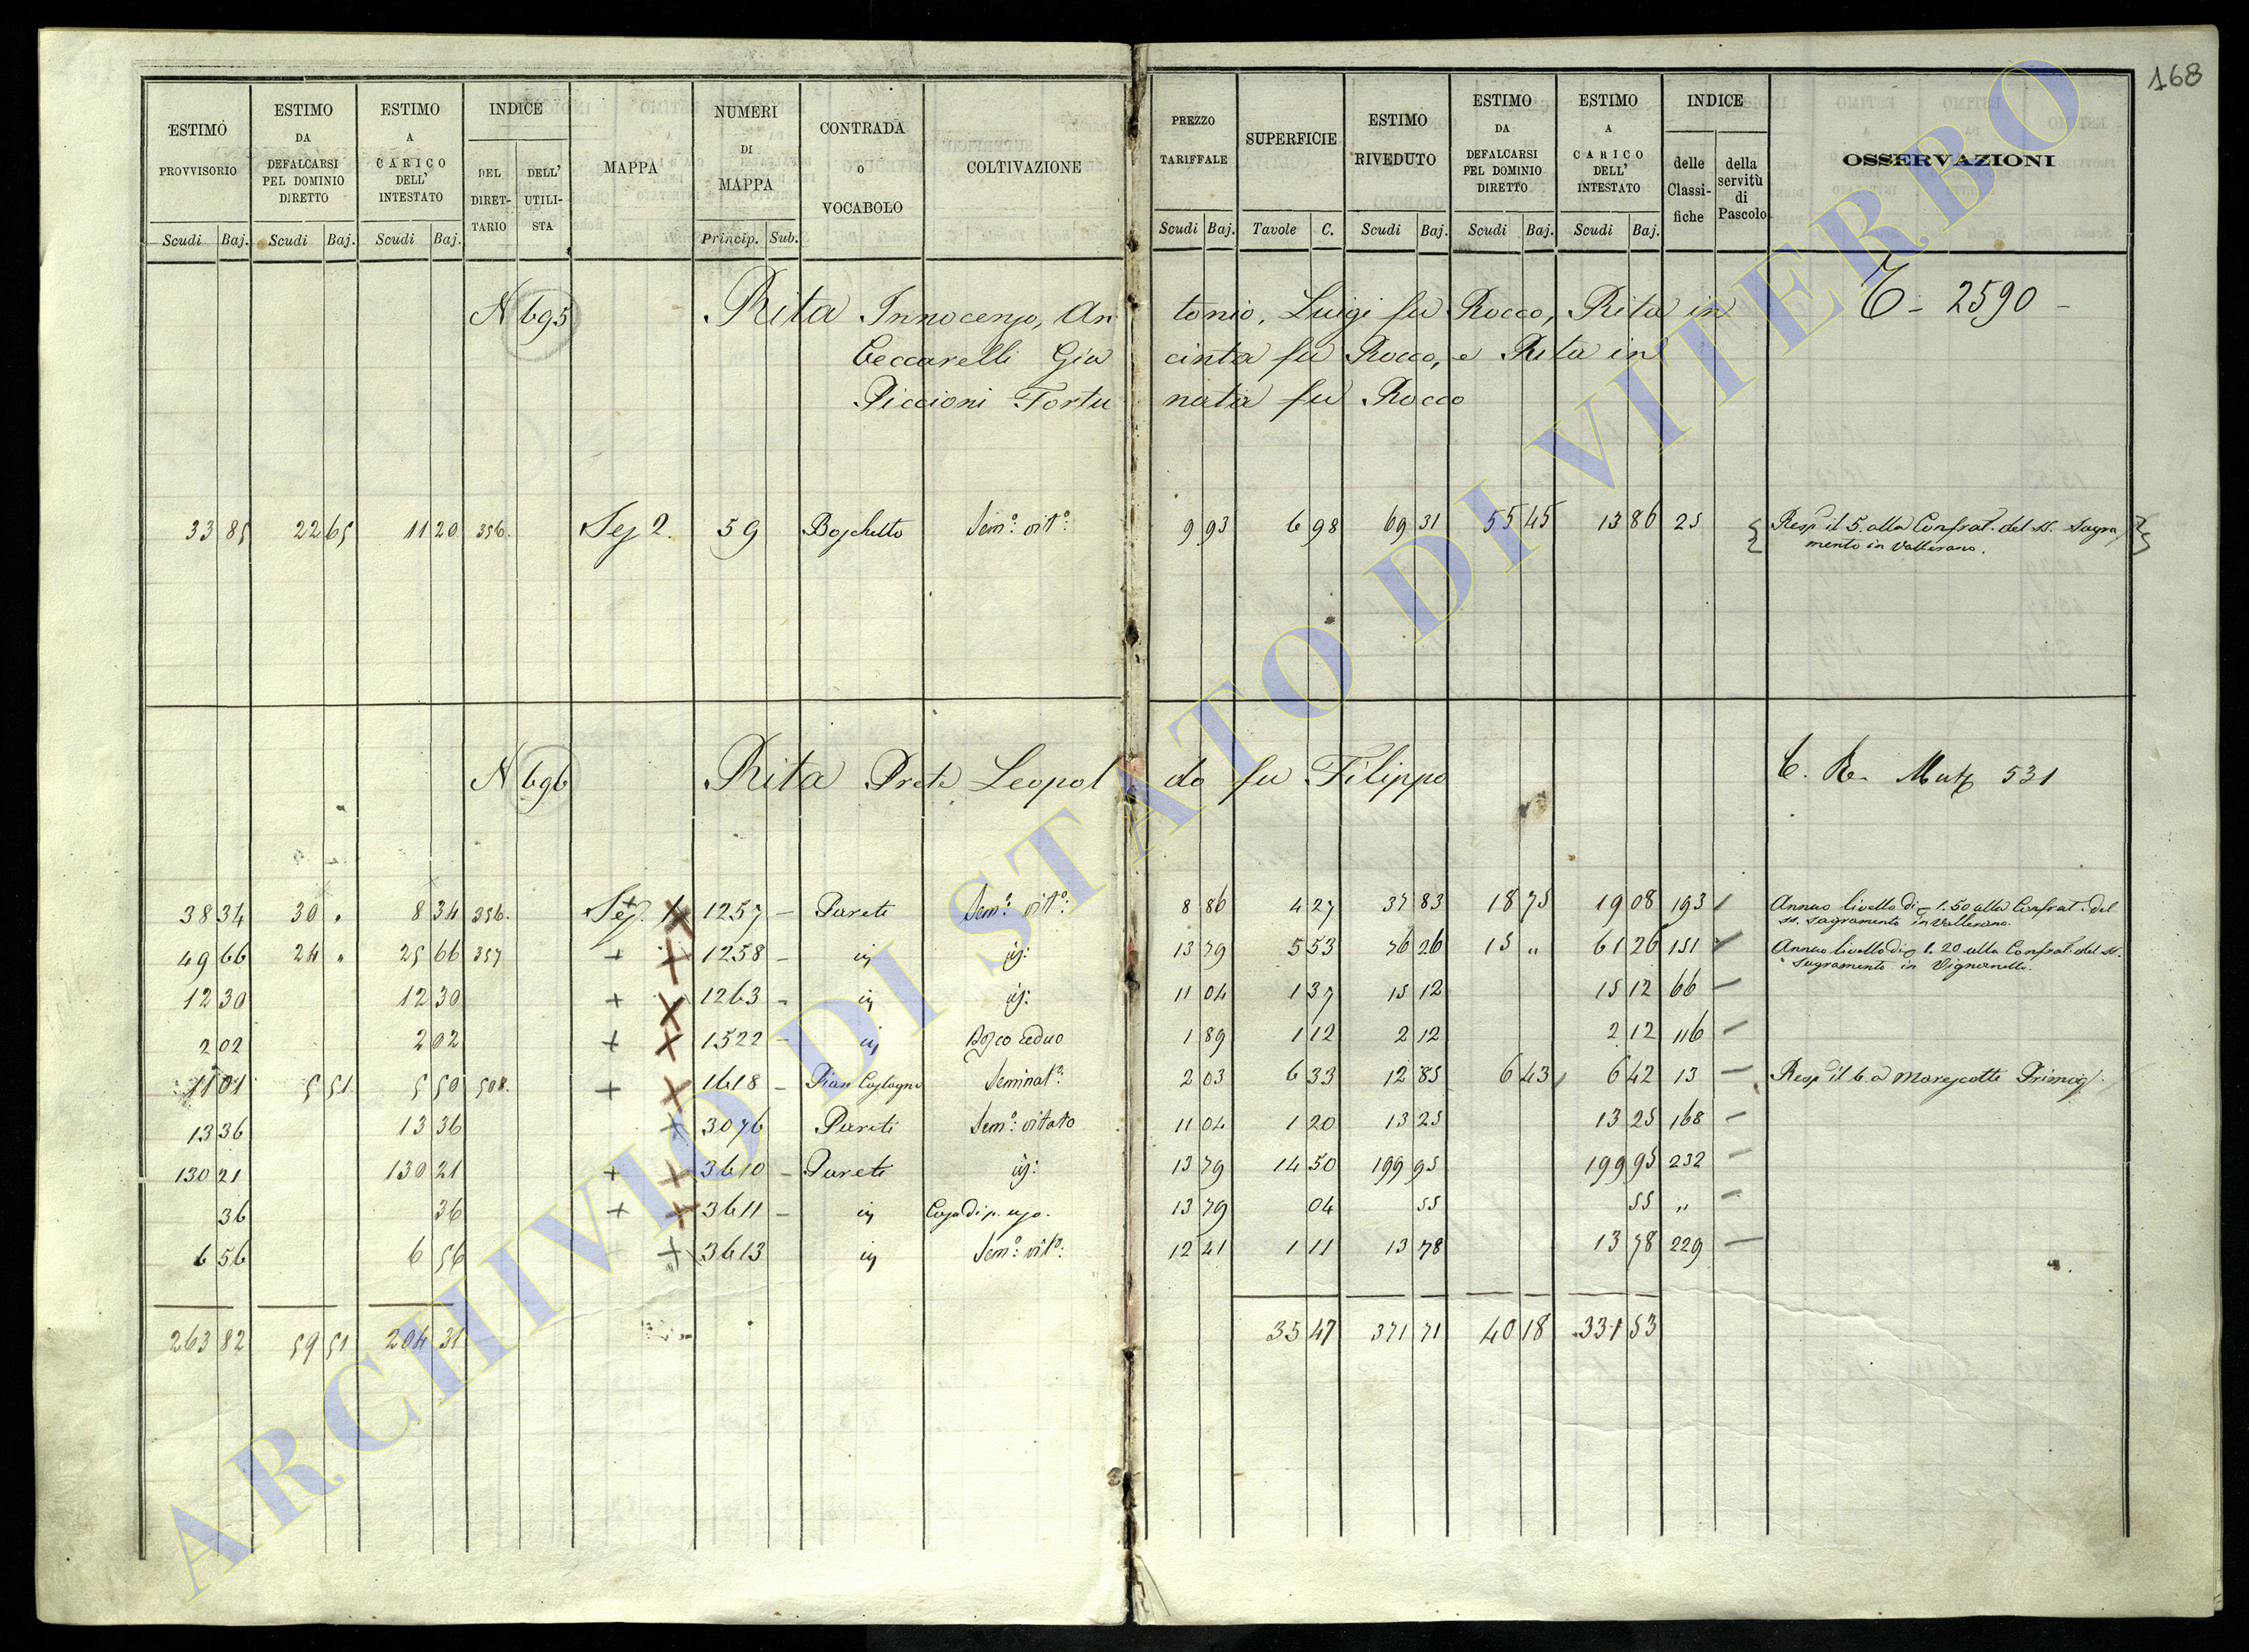 168
ESTIMO PROVVISORIO | ESTIMO DA DEFALCARSI PEL DOMINIO DIRETTO | ESTIMO A CARICO DELL' INTESTATO | INDICE DEL DIRETTARIO | DELL' UTILISTA | MAPPA | NUMERI DI MAPPA | CONTRADA O VOCABOLO | COLTIVAZIONE | PREZZO TARIFFALE | SUPERFICIE | ESTIMO RIVEDUTO | ESTIMO DA DEFALCARSI PEL DOMINIO DIRETTO | ESTIMO A CARICO DELL' INTESTATO | INDICE delle Classifiche | della servitù di Pascolo | OSSERVAZIONI
Scudi Baj. | Scudi Baj. | Scudi Baj. | Princip. Sub. | Scudi Baj. | Tavole C. | Scudi Baj. | Scudi Baj. | Scudi Baj.
N 695 Rita Innocenzo, Antonio, Luigi fu Rocco, Rita in 2590
Ceccarelli Giacinta fu Rocco, e Rita in
Piccioni Fortunata fu Rocco
33 85 | 22 65 | 11 20 | 356. | Sez 2. | 59 | Boschetto | Sem.o vit.o: | 9 93 | 6 98 | 69 31 | 55 45 | 13 86 | 25 | Resp il 5. alla Confrat. del SS. Sagra
mento in Vallerano.
N 696 Rita Prete Leopoldo fu Filippo 531
38 34 | 30 " | 8 34 | 356. | Sez. 1 | 1257 | Parete | Sem.o vit.o: | 8 86 | 4 27 | 37 83 | 18 75 | 19 08 | 193 | Annuo livello di 1.50 alla Confrat. del
SS. Sagramento in Vallerano.
49 66 | 24 " | 25 66 | 357 | + | 1258 | ij | ij: | 13 79 | 5 53 | 76 26 | 15 " | 61 26 | 151 | Annuo livello di 1.20 alla Confrat. del SS.
Sagramento in Vignanello.
12 30 | 12 30 | + | 1263 | ij | ij: | 11 04 | 1 37 | 15 12 | 15 12 | 66
2 02 | 2 02 | + | 1522 | ij | Bosco ceduo | 1 89 | 1 12 | 2 12 | 2 12 | 116
11 01 | 5 51 | 5 50 | 508. | + | 1618 | Pian Castagno | Seminat.o | 2 03 | 6 33 | 12 85 | 6 43 | 6 42 | 13 | Resp il 6 a Marescotti
13 36 | 13 36 | 3076 | Pareti | Sem.o vitato | 11 04 | 1 20 | 13 25 | 13 25 | 168
130 21 | 130 21 | + | 3610 | Parete | ij: | 13 79 | 14 50 | 199 95 | 199 95 | 232
36 | 36 | + | 3611 | ij | Casa di p. uso. | 13 79 | 04 | 55 | 55 | "
6 56 | 6 56 | 3613 | ij | Sem.o: vit.o: | 12 41 | 1 11 | 13 78 | 13 78 | 229
263 82 | 59 51 | 204 31 | 35 47 | 371 71 | 40 18 | 331 53
ARCHIVIO DI STATO DI VITERBO